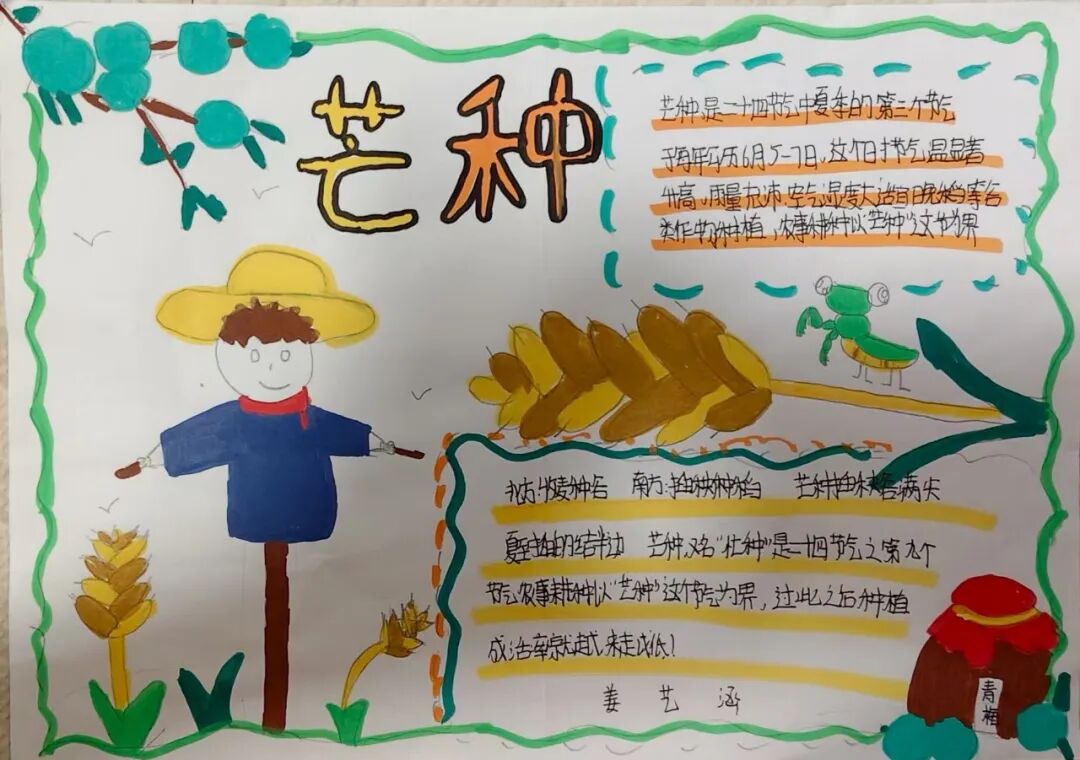 芒种
芒种是二十四节气中夏季的第三个节气
于每年公历6月5-7日，这个时节气温显著
升高，雨量充沛，空气湿度大适宜晚稻等谷
类作物种植，农事耕种以“芒种”这节为界
北方:收麦种谷 南方:插秧种稻 芒种插秧谷满尖
夏至插的结半边 芒种，又名“忙种”是二十四节气之第九个
节气农事耕种以“芒种”这个节气为界，过此之后种植
成活率就越来越低！
姜 艺 涵
青
梅